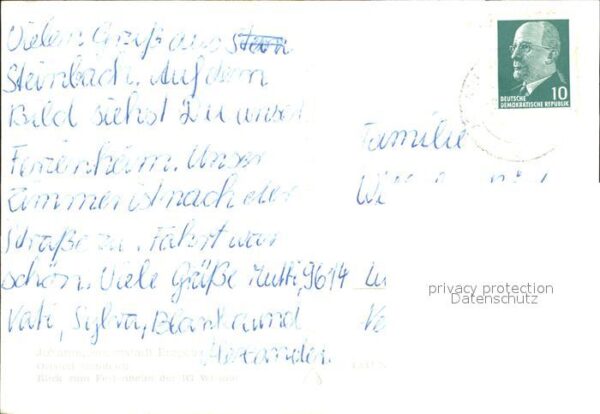 Vielen Gruß aus Stein
Steinbach. Auf dem
Bild siehst Du unser
Ferienheim. Unser
Zimmer ist nach der
Straße zu. Fahrt war
schön. Viele Grüße Mutti,
Vati, Sylva, und
Alexander.
10
DEUTSCHE
DEMOKRATISCHE REPUBLIK
Familie
Wi
9614
privacy protection
Datenschutz
Ortsteil Steinbach
Blick zum Ferienheim der IG Wismut